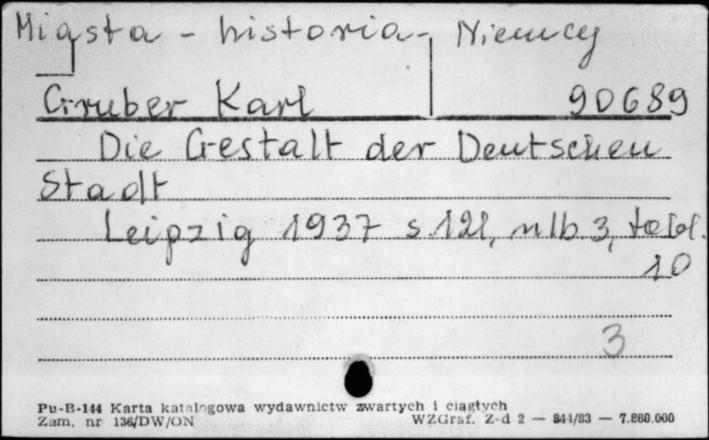 Miasta - historia - Niemcy
Gruber Karl 90689
Die Gestalt der Deutschen
Stadt
Leipzig 1937 s. 121, nlb 3, tabl.
10
3
Pu-B-144 Karta katalogowa wydawnictw zwartych i ciągłych
Zam. nr 136/DW/ON WZGraf. Z-d 2 — 844/83 — 7.860.000